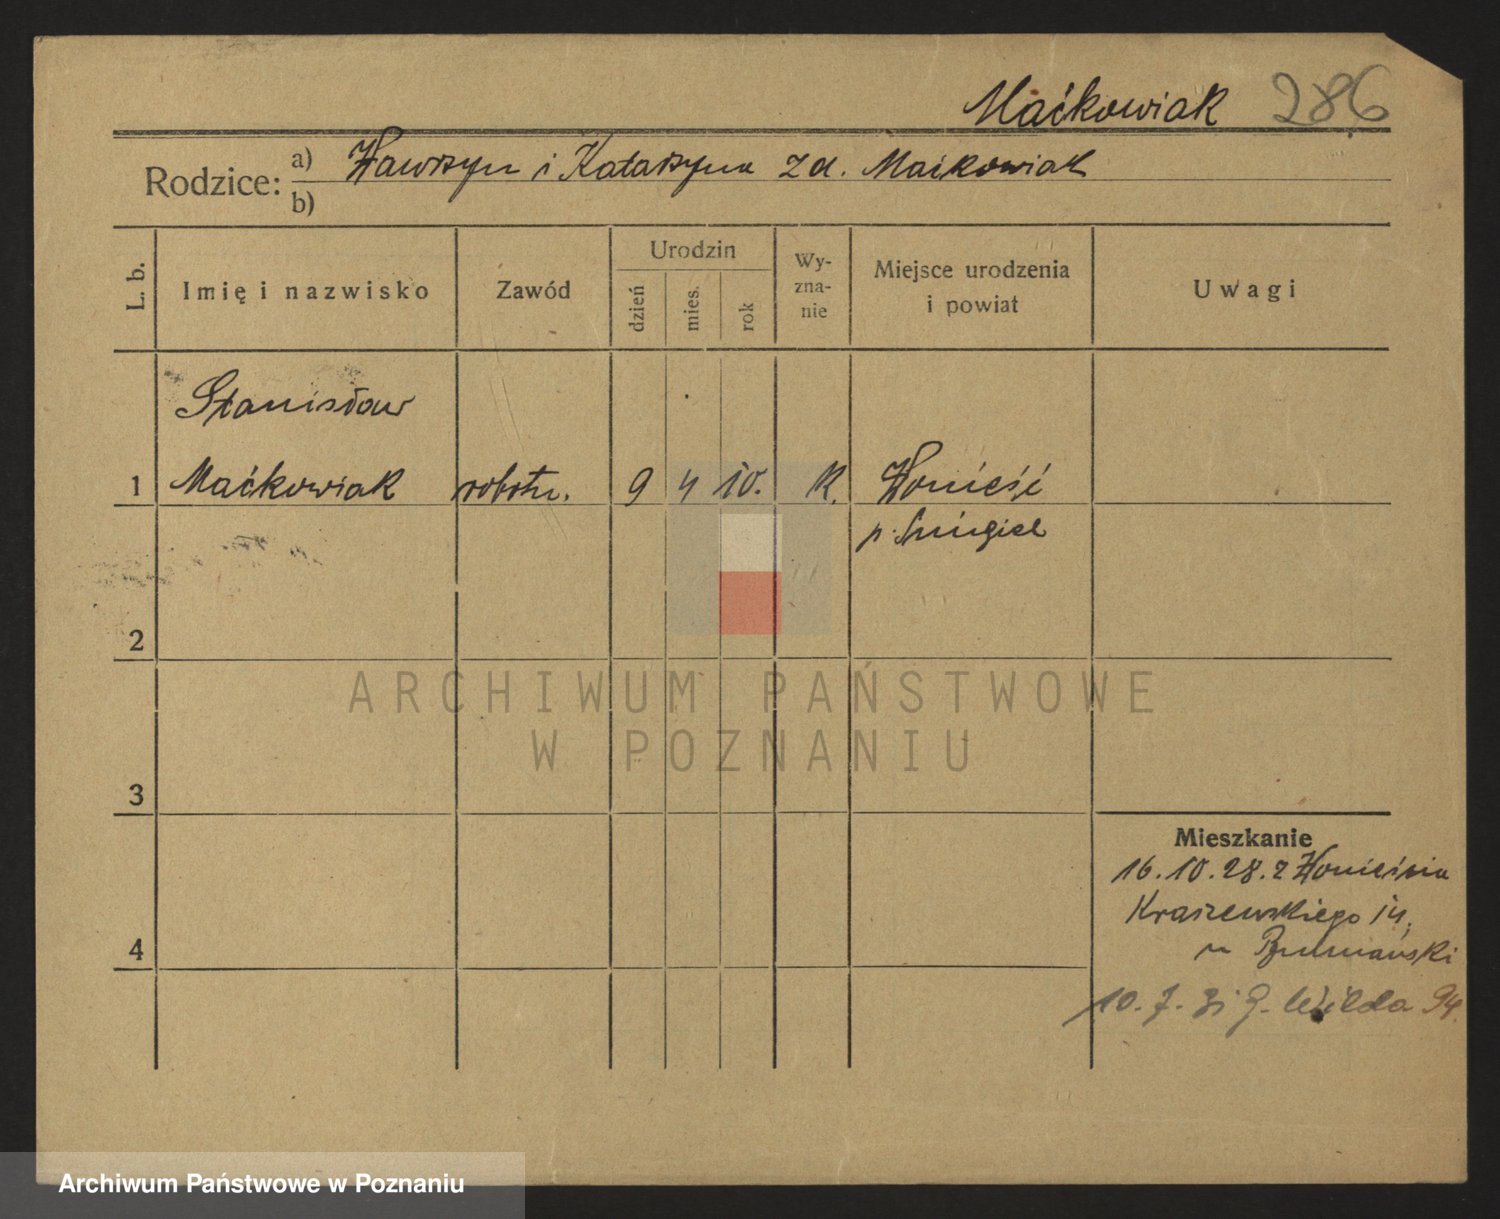 Maćkowiak 286
Rodzice: a) Wawrzyn i Katarzyna z d. Maćkowiak
b)
L. b. Imię i nazwisko Zawód Urodzin dzień mies. rok Wyznanie Miejsce urodzenia i powiat Uwagi
Stanisław
1 Maćkowiak robotn. 9 4 10. k. Wonieść
p. Śmigiel
2
ARCHIWUM PAŃSTWOWE
W POZNANIU
3
Mieszkanie
16.10.28. z Wonieścia
Kraszewskiego 14.
4
10. 7. 31 G. Wilda 94.
Archiwum Państwowe w Poznaniu